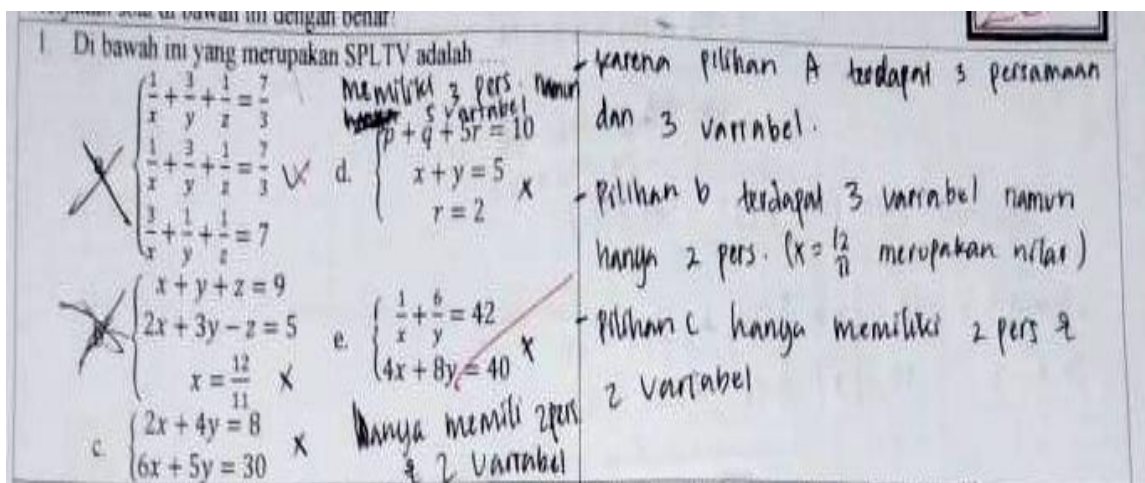 soal di bawah ini dengan benar!
1. Di bawah ini yang merupakan SPLTV adalah ....
a. 1/x + 3/y + 1/z = 7/3
1/x + 3/y + 1/z = 7/3 V
3/x + 1/y + 1/z = 7
b. x + y + z = 9
2x + 3y − z = 5
x = 12/11 x
c. 2x + 4y = 8 x
6x + 5y = 30
memiliki 3 pers. namun
5 variabel
d. p + q + 5r = 10
x + y = 5 x
r = 2
e. 1/x + 6/y = 42
4x + 8y = 40 x
Hanya memili 2 pers
& 2 variabel
- karena pilihan A terdapat 3 persamaan
dan 3 variabel.
- Pilihan b terdapat 3 variabel namun
hanya 2 pers. (x = 12/11 merupakan nilai)
- Pilihan C hanya memiliki 2 pers &
2 variabel